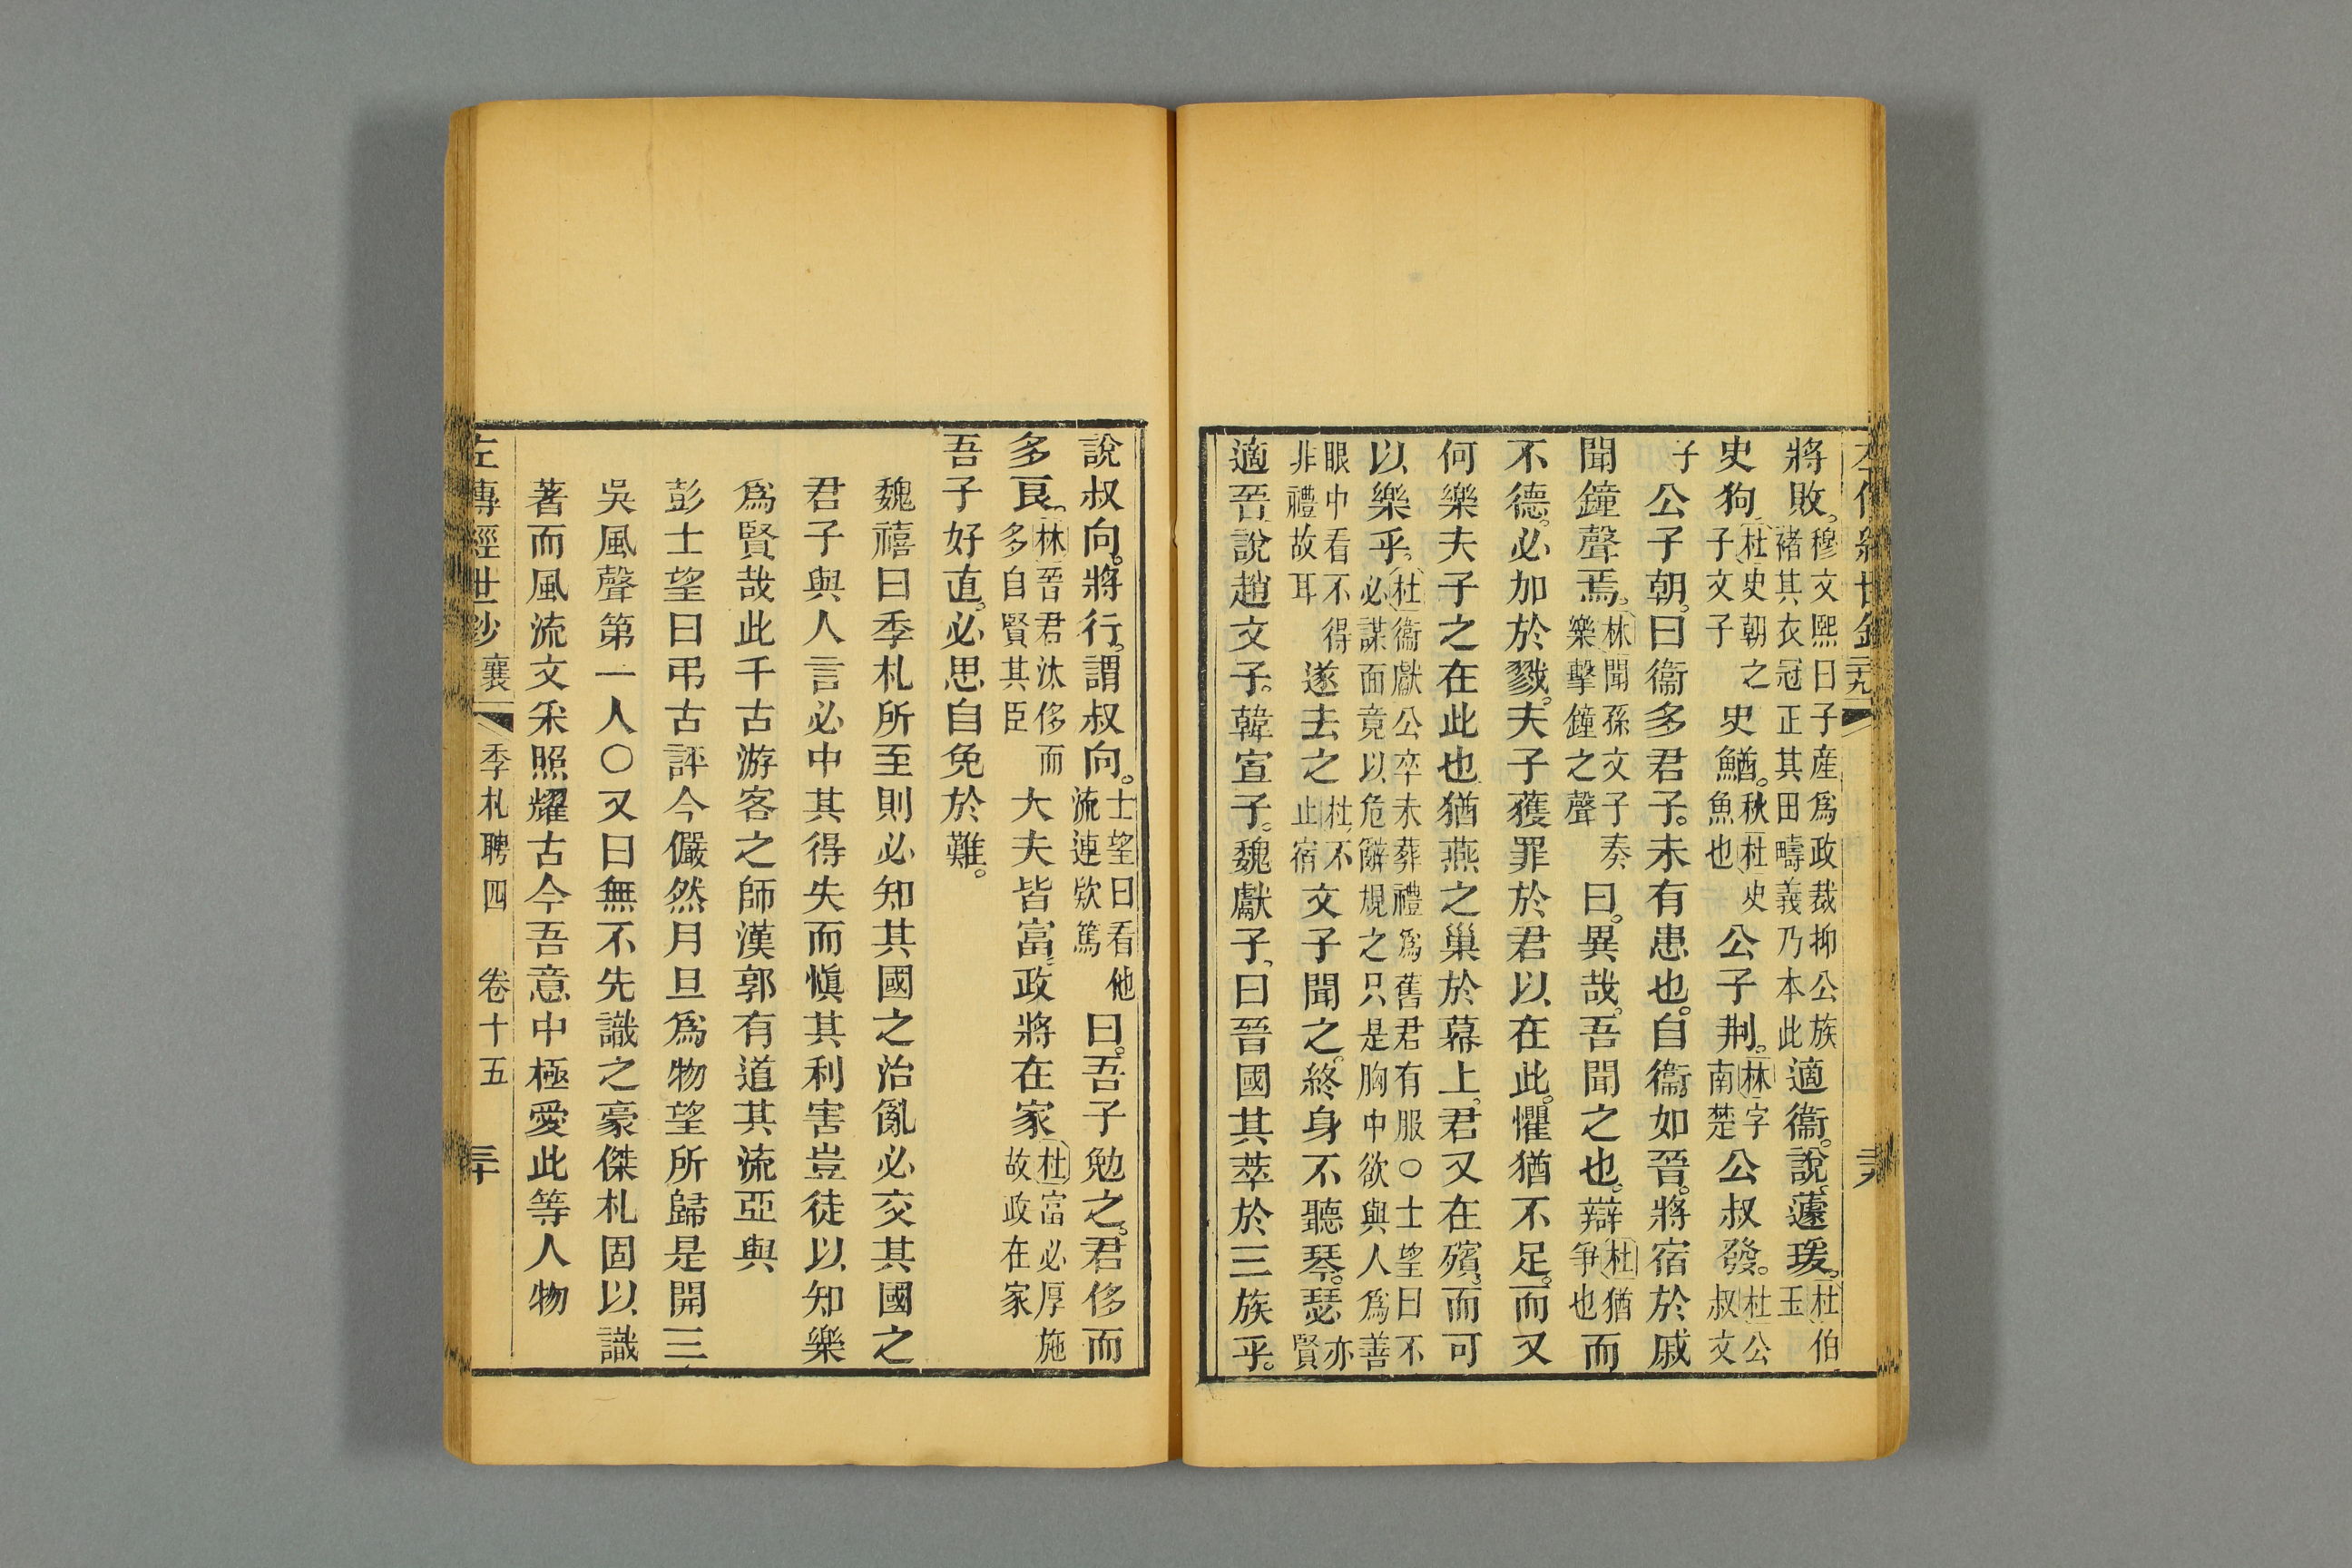 將敗。穆文熙曰子產爲政裁抑公族褚其衣冠正其田疇義乃本此適衞。說蘧瑗。杜伯玉
史狗杜史朝之子文子史鰌。秋杜史魚也公子荆。林字南楚公叔發。杜公叔文
子公子朝。曰衞多君子。未有患也。自衞如晉。將宿於戚
聞鐘聲焉。林聞孫文子奏樂擊鐘之聲曰。異哉。吾聞之也。辯杜猶爭也而
不德。必加於戮。夫子獲罪於君以在此。懼猶不足。而又
何樂夫子之在此也猶燕之巢於幕上。君又在殯。而可
以樂乎。杜衞獻公卒未葬禮爲舊君有服〇士望曰不必謀面竟以危辭規之只是胸中欲與人爲善
眼中看不得非禮故耳遂去之杜不止宿文子聞之。終身不聽琴。瑟亦賢
適晉說趙文子。韓宣子。魏獻子、曰晉國其萃於三族乎。
說叔向。將行。謂叔向。士望曰看他流連欵篤曰。吾子勉之。君侈而
多良。林晉君汰侈而多自賢其臣大夫皆富。政將在家杜富必厚施故政在家
吾子好直。必思自免於難。
魏禧曰季札所至則必知其國之治亂必交其國之
君子與人言必中其得失而愼其利害豈徒以知樂
爲賢哉此千古游客之師漢郭有道其流亞與
彭士望曰弔古評今儼然月旦爲物望所歸是開三
吳風聲第一人〇又曰無不先識之豪傑札固以識
著而風流文采照耀古今吾意中極愛此等人物
左傳經世鈔 襄 季札聘四 卷十五 三十